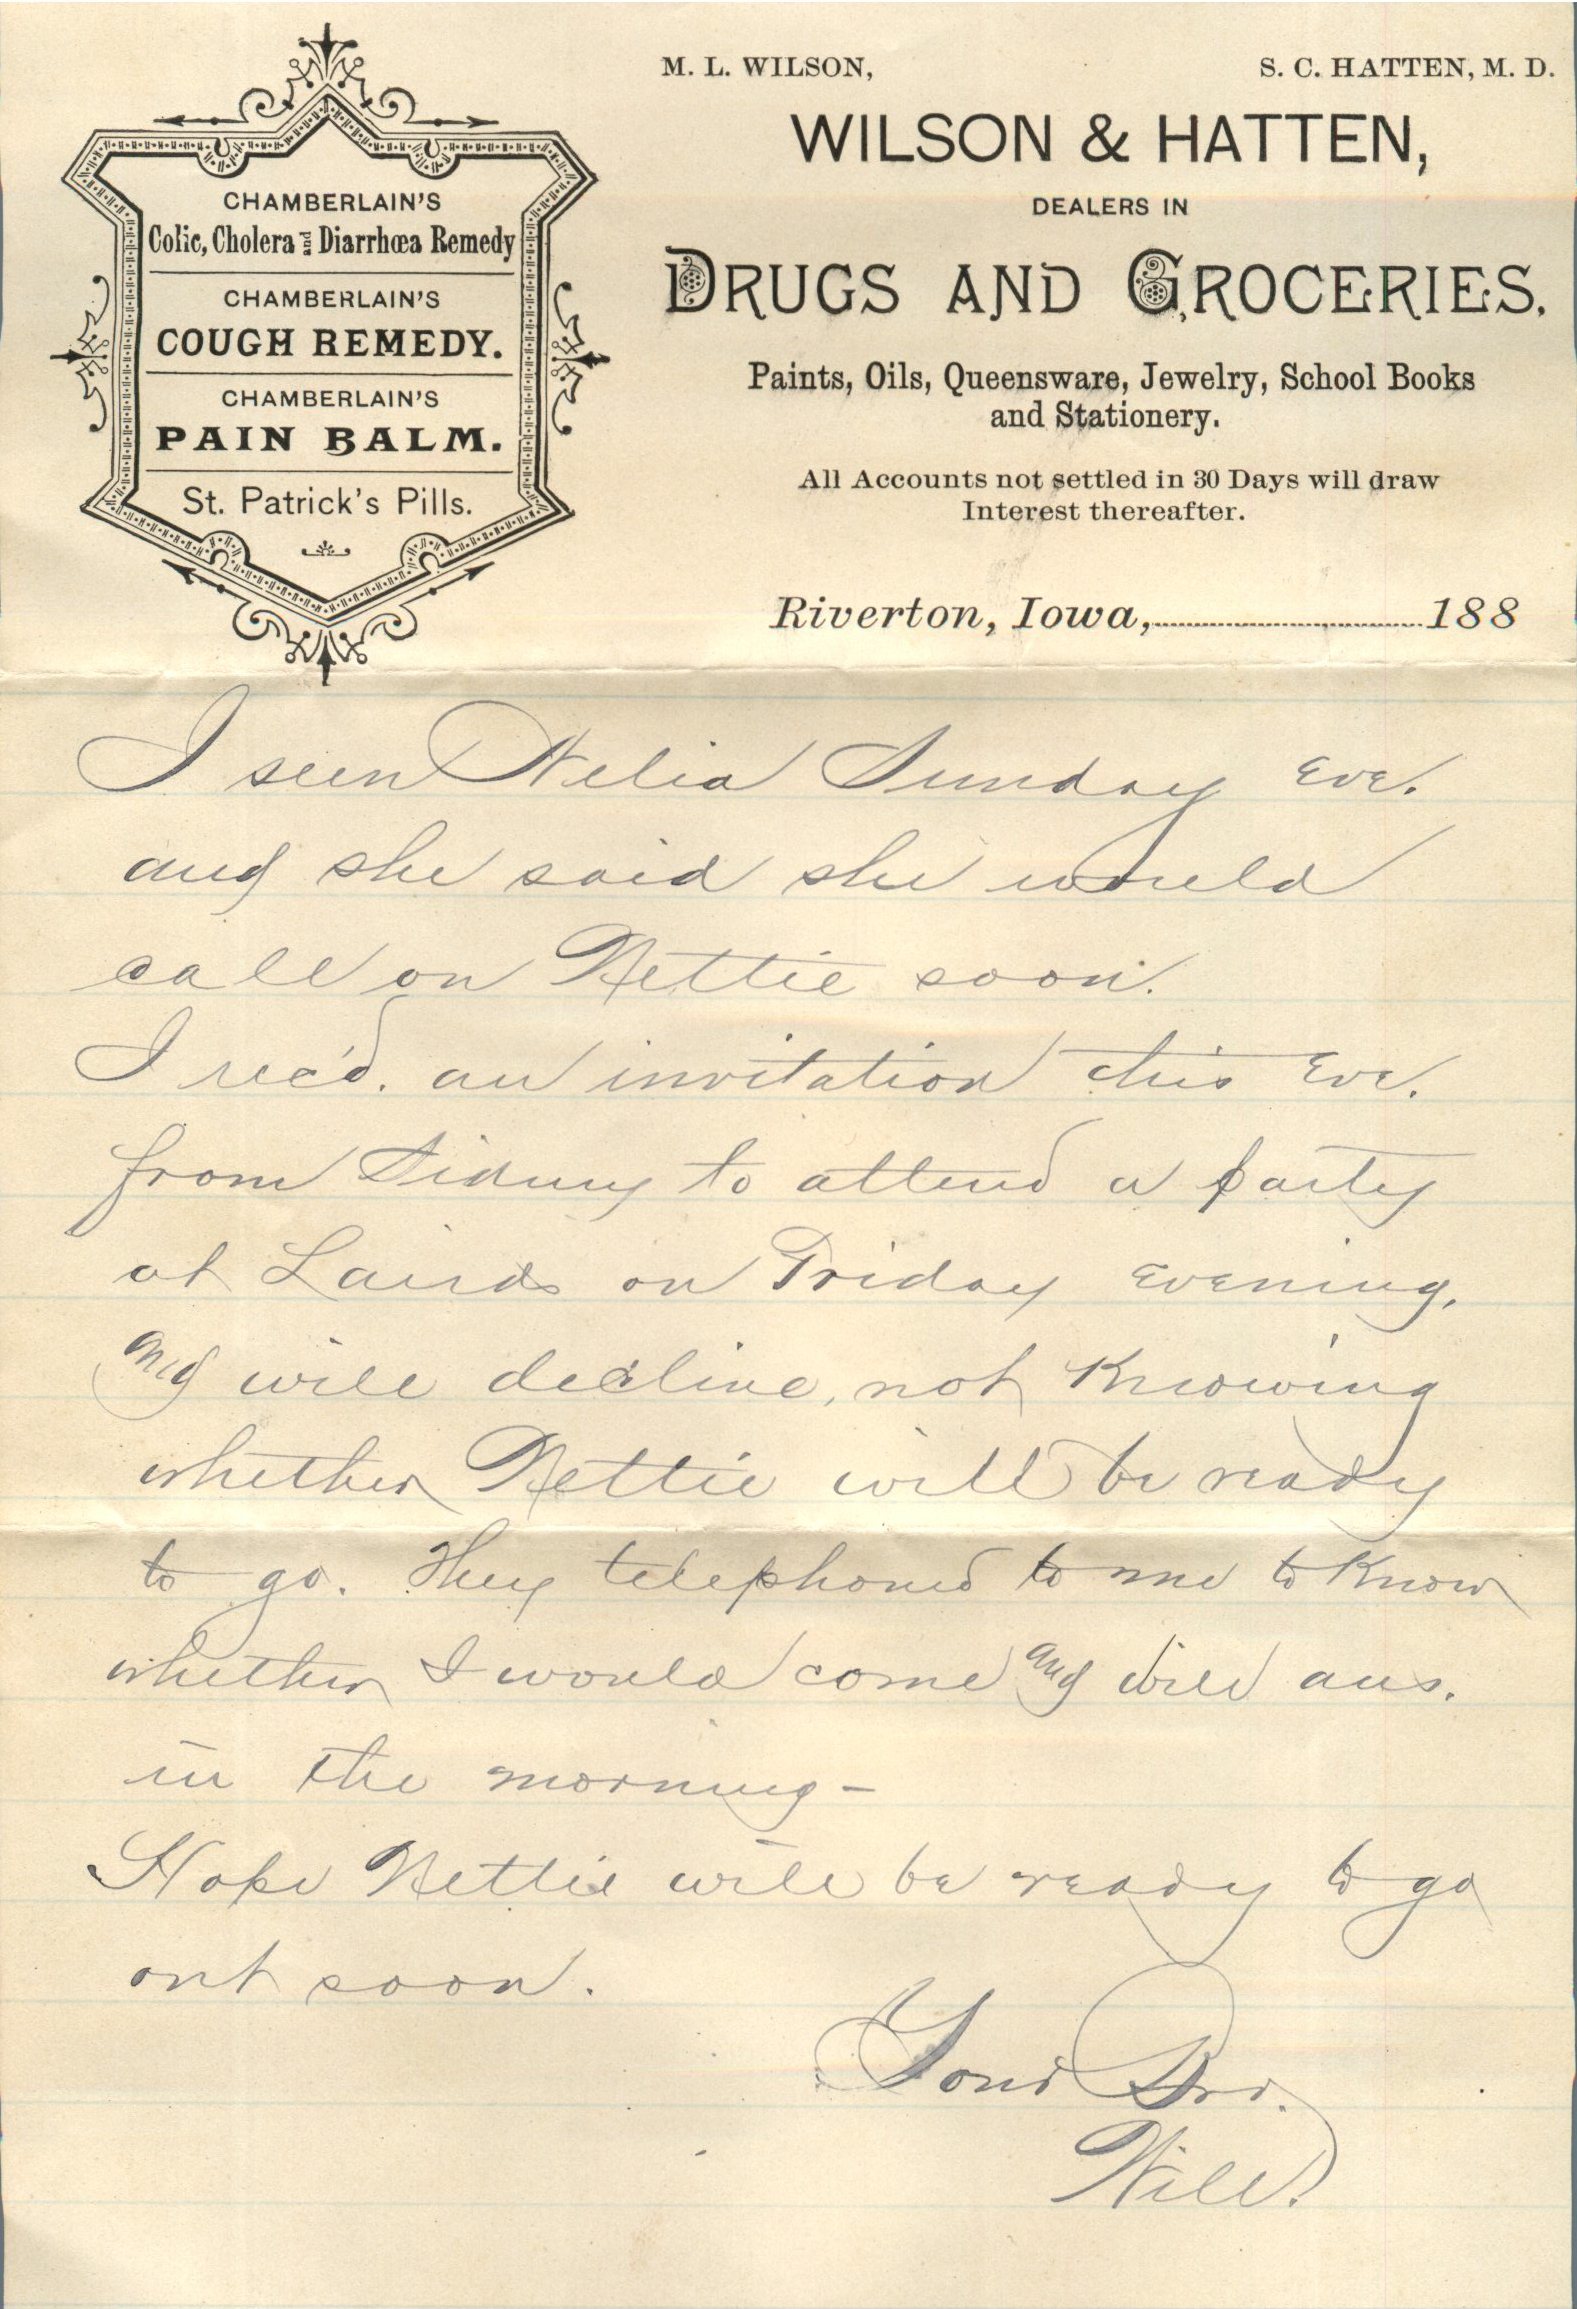 CHAMBERLAIN'S
Colic, Cholera and Diarrhœa Remedy
CHAMBERLAIN'S
COUGH REMEDY.
CHAMBERLAIN'S
PAIN BALM.
St. Patrick's Pills.
M. L. WILSON,
S. C. HATTEN, M. D.
WILSON & HATTEN,
DEALERS IN
DRUGS AND GROCERIES.
Paints, Oils, Queensware, Jewelry, School Books
and Stationery.
All Accounts not settled in 30 Days will draw
Interest thereafter.
Riverton, Iowa, 188
I seen Nelia Sunday Eve.
and she said she would
call on Nettie soon.
I rec'd. an invitation this Eve.
from Sidney to attend a party
at Lairds on Friday evening,
and will decline, not Knowing
whether Nettie will be ready
to go. They telephoned to me to Know
whether I would come and will ans.
in the morning -
Hope Nettie will be ready to go
out soon.
Your Bro.
Will.